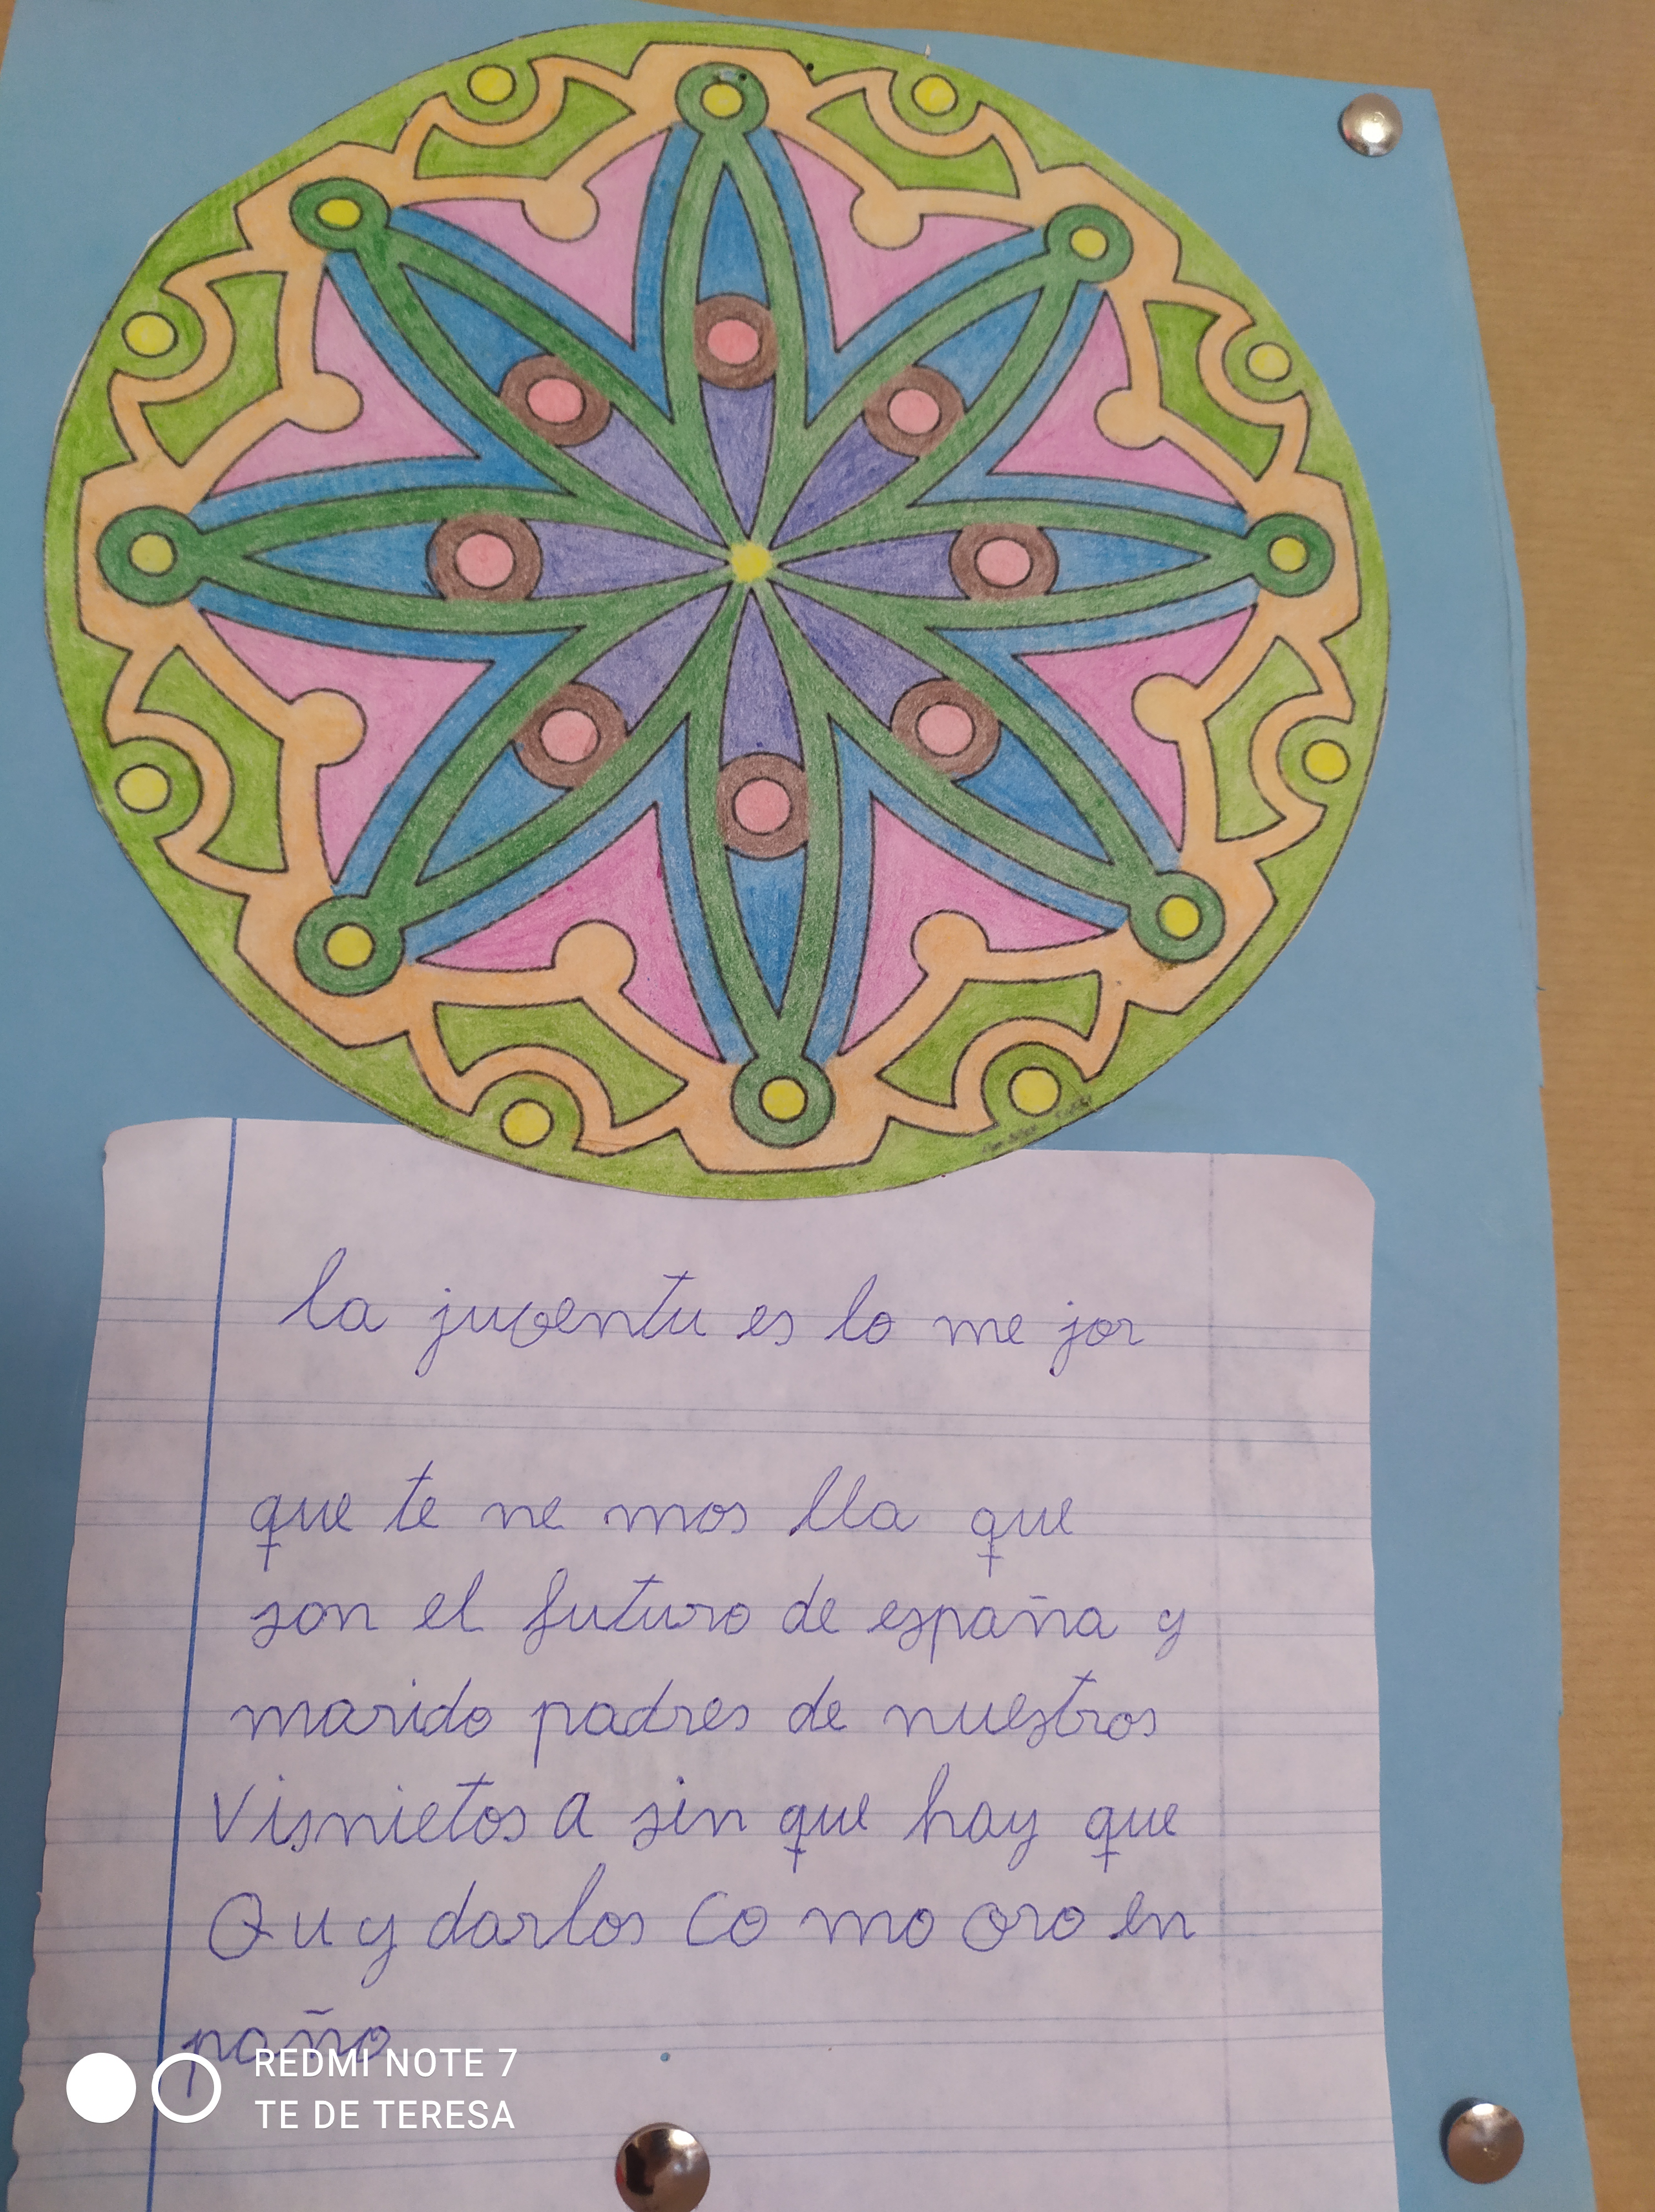 la juventu es lo me jor
que te ne mos lla que
son el futuro de españa y
marido padres de nuestros
Visnietos a sin que hay que
Quydarlos co mo oro en
paño
REDMI NOTE 7
TE DE TERESA